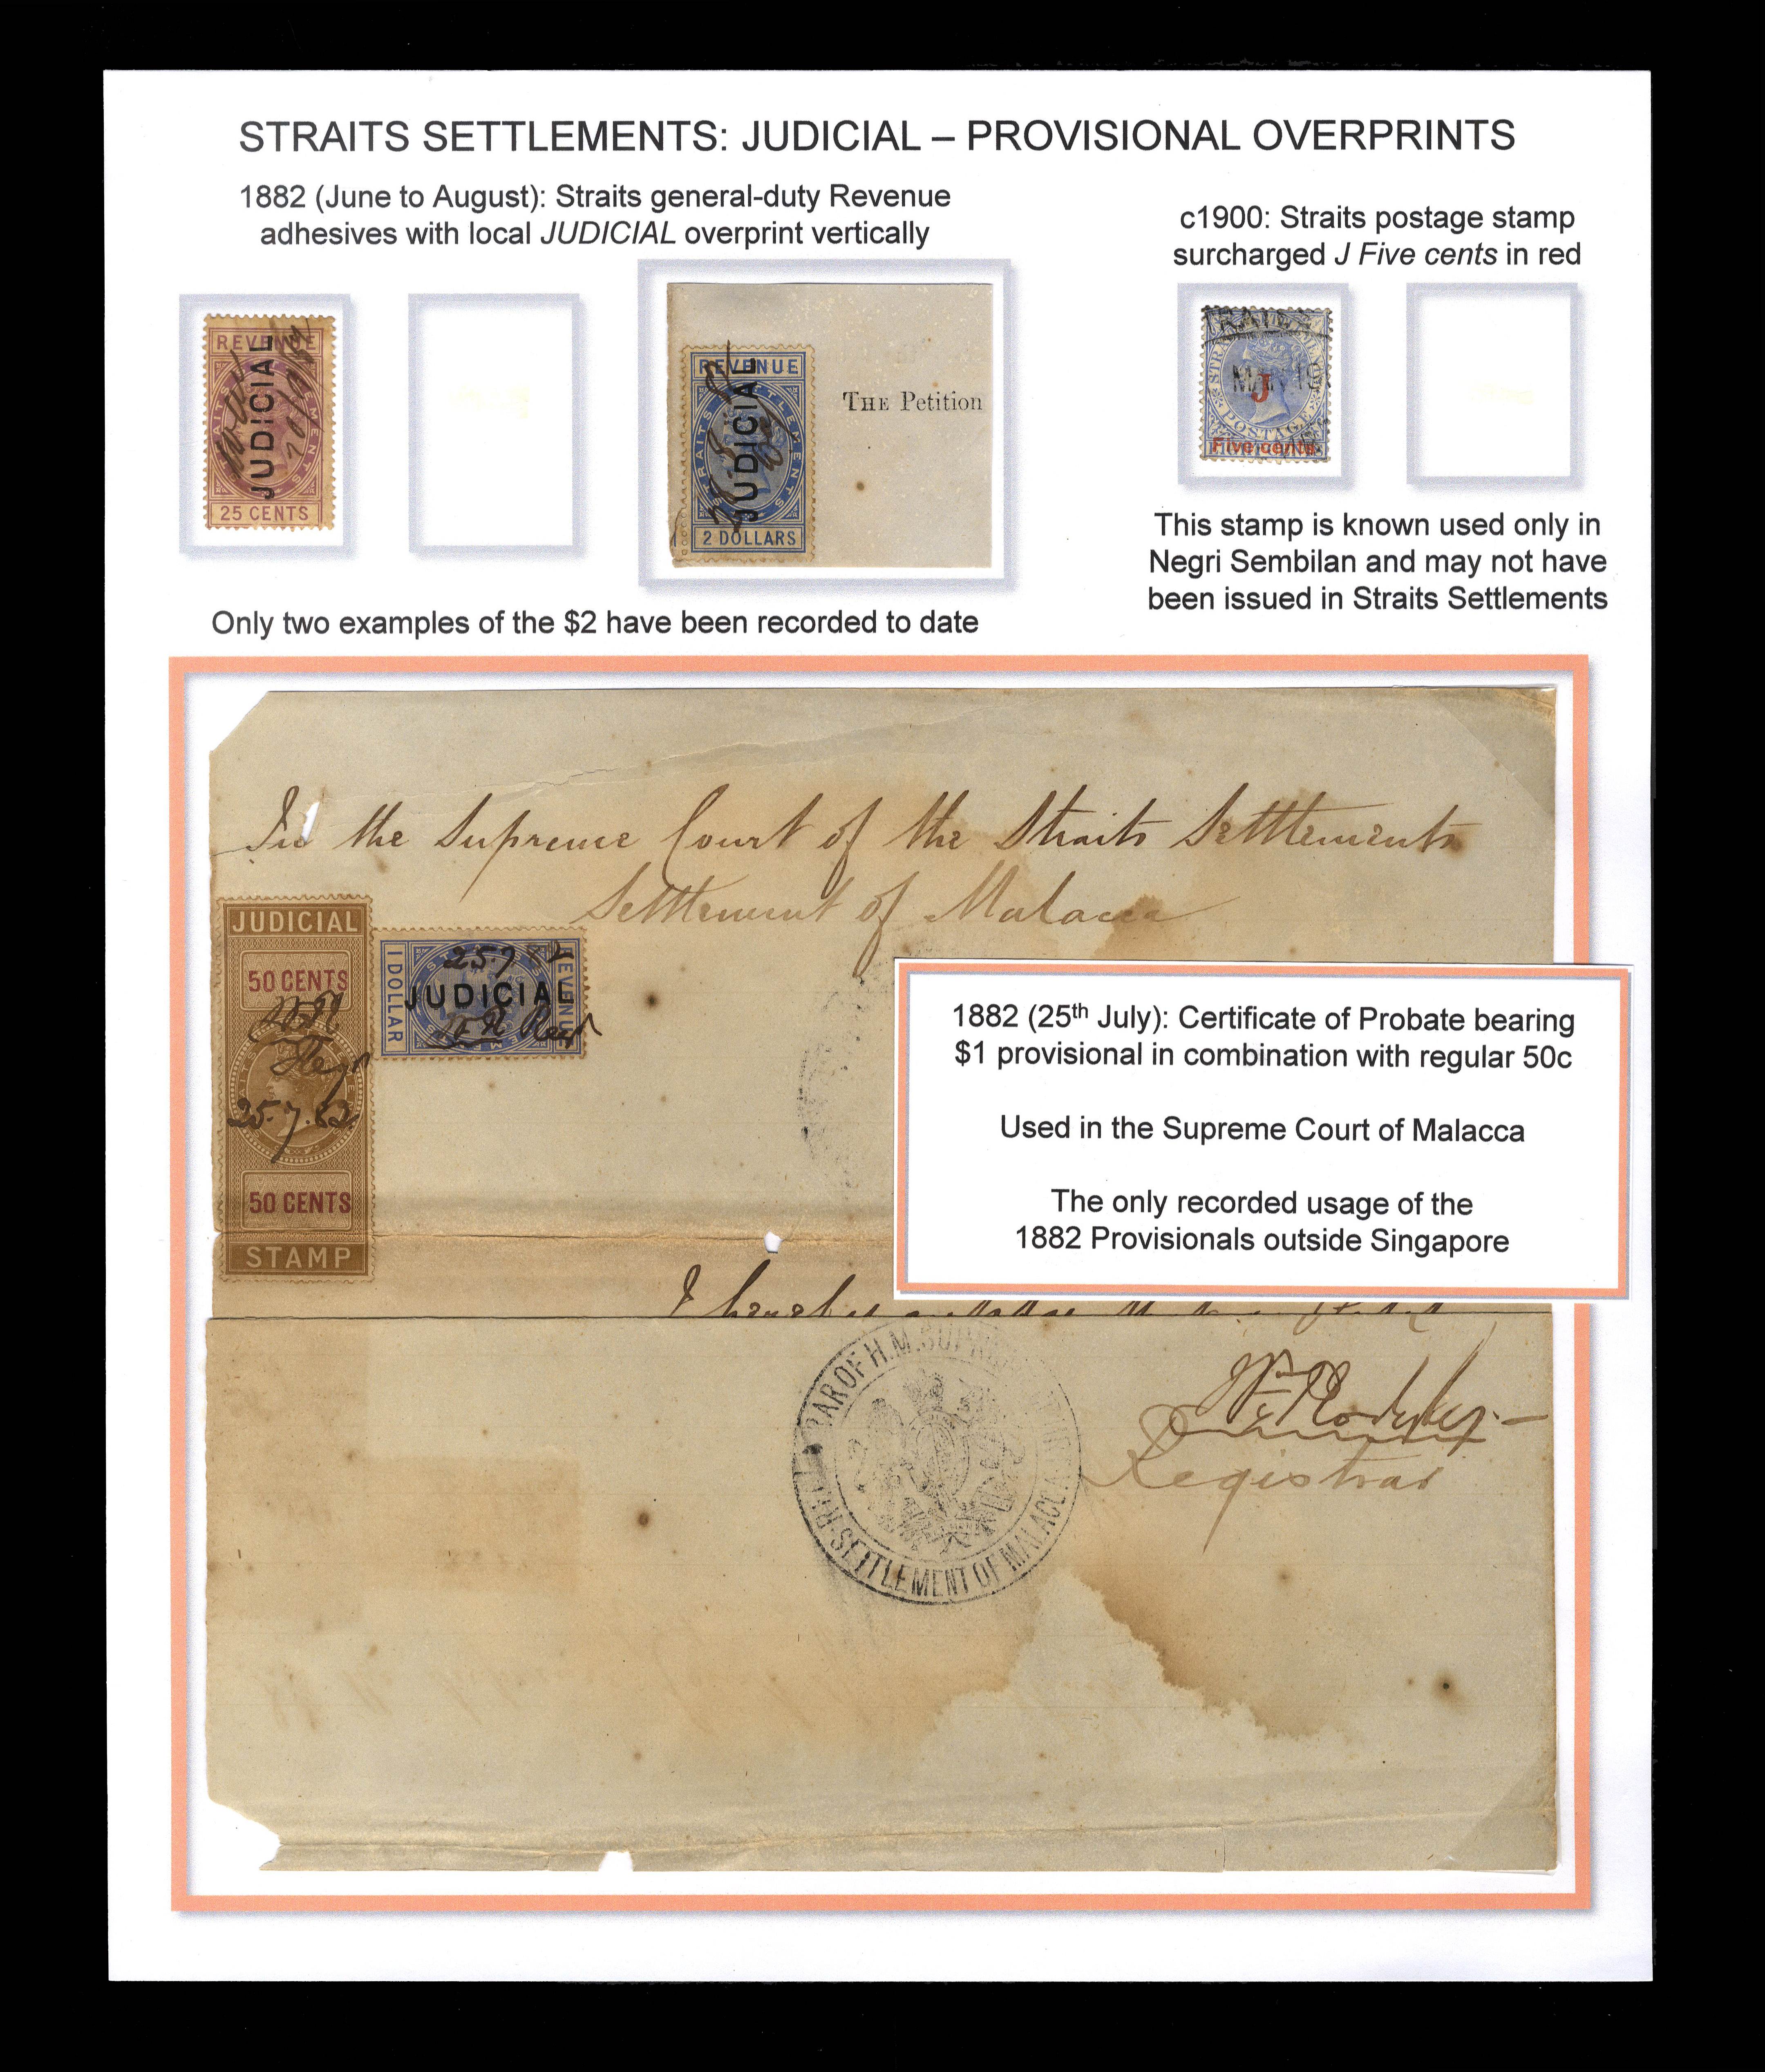 STRAITS SETTLEMENTS: JUDICIAL – PROVISIONAL OVERPRINTS
1882 (June to August): Straits general-duty Revenue
adhesives with local JUDICIAL overprint vertically
c1900: Straits postage stamp
surcharged J Five cents in red
REVENUE
JUDICIAL
25 CENTS
REVENUE
STRAITS SETTLEMENTS
JUDICIAL
2 DOLLARS
THE Petition
J
POSTAGE
Five cents
This stamp is known used only in
Negri Sembilan and may not have
been issued in Straits Settlements
Only two examples of the $2 have been recorded to date
In the Supreme Court of the Straits Settlements
Settlement of Malacca
JUDICIAL
50 CENTS
25.7.82
50 CENTS
STAMP
1 DOLLAR
25.7
JUDICIAL
REVENUE
1882 (25th July): Certificate of Probate bearing
$1 provisional in combination with regular 50c
Used in the Supreme Court of Malacca
The only recorded usage of the
1882 Provisionals outside Singapore
I hereby
OF H.M. SUPREME
SETTLEMENT OF MALACCA
Registrar